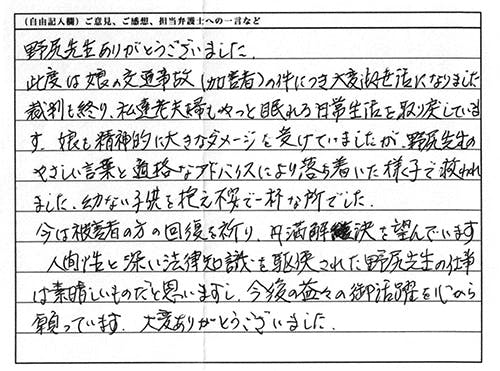 (自由記入欄)ご意見、ご感想、担当弁護士への一言など
野尻先生ありがとうございました。
此度は娘の交通事故(加害者)の件につき大変御世話になりました
裁判も終り、私達老夫婦もやっと眠れる日常生活を取り戻していま
す。娘も精神的に大きなダメージを受けていましたが、野尻先生の
やさしい言葉と適格なアドバイスにより落ち着いた様子で救われ
ました。幼ない子供を抱え不安で一杯な所でした。
今は被害者の方の回復を祈り、円満解決を望んでいます
人間性と深い法律知識を駆使された野尻先生の仕事
は素晴しいものだと思いますし、今後の益々の御活躍を心から
願っています。大変ありがとうございました。